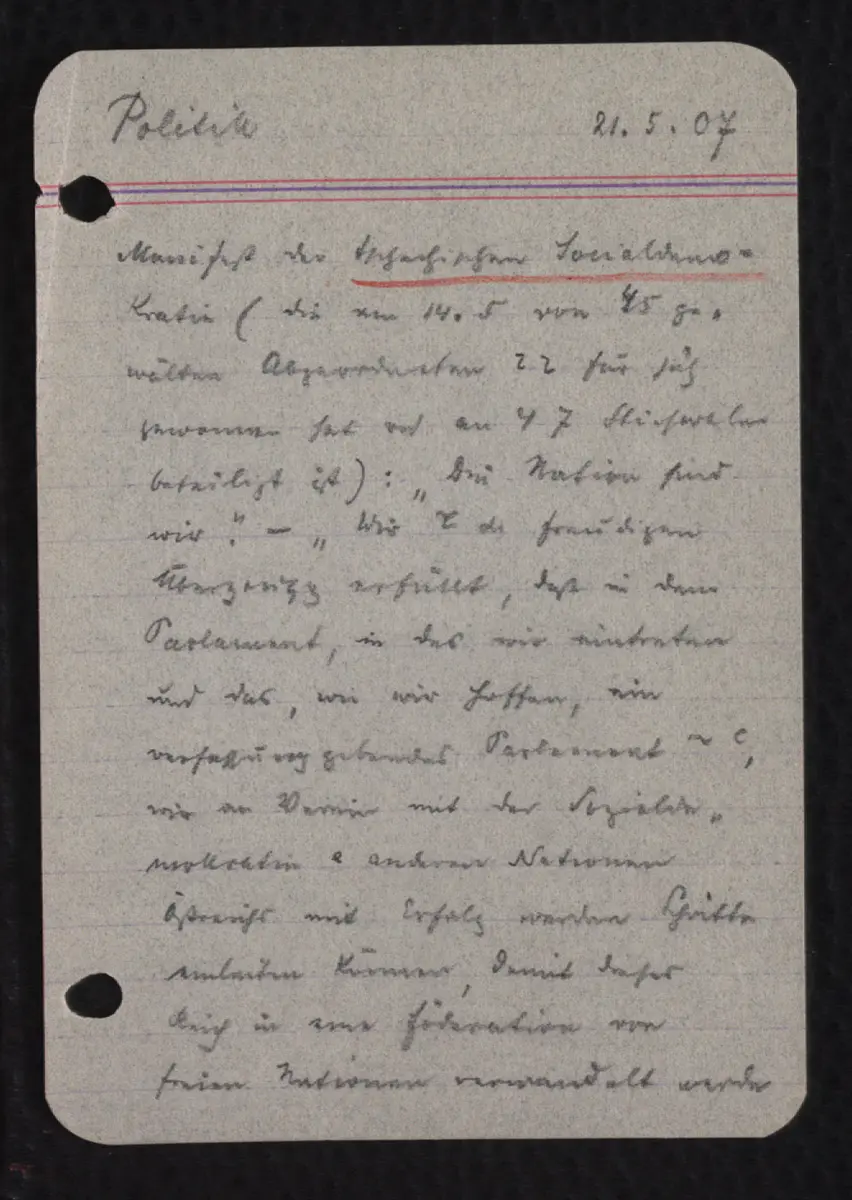 Politik 21. 5. 07
Manifest der tschechischen Socialdemo=
kratie ( die am 14. 5 von 45 ge„
wälten Abgeordneten 22 für sich
gewonnen hat und an 47 Stichwalen
beteiligt ist) : „Die Nation sind
wir." – „Wir freudigen
Überzeugg erfüllt, daß in dem
Parlament, in das wir eintreten
und das, wie wir hoffen, ein
verfassunggebendes Parlament
wir im Verein mit der Sozialde„
mokratie anderen Nationen
Östreichs mit Erfolg werden Schritte
einleiten können, damit dieses
Reich in eine Föderation von
freien Nationen verwandelt werde